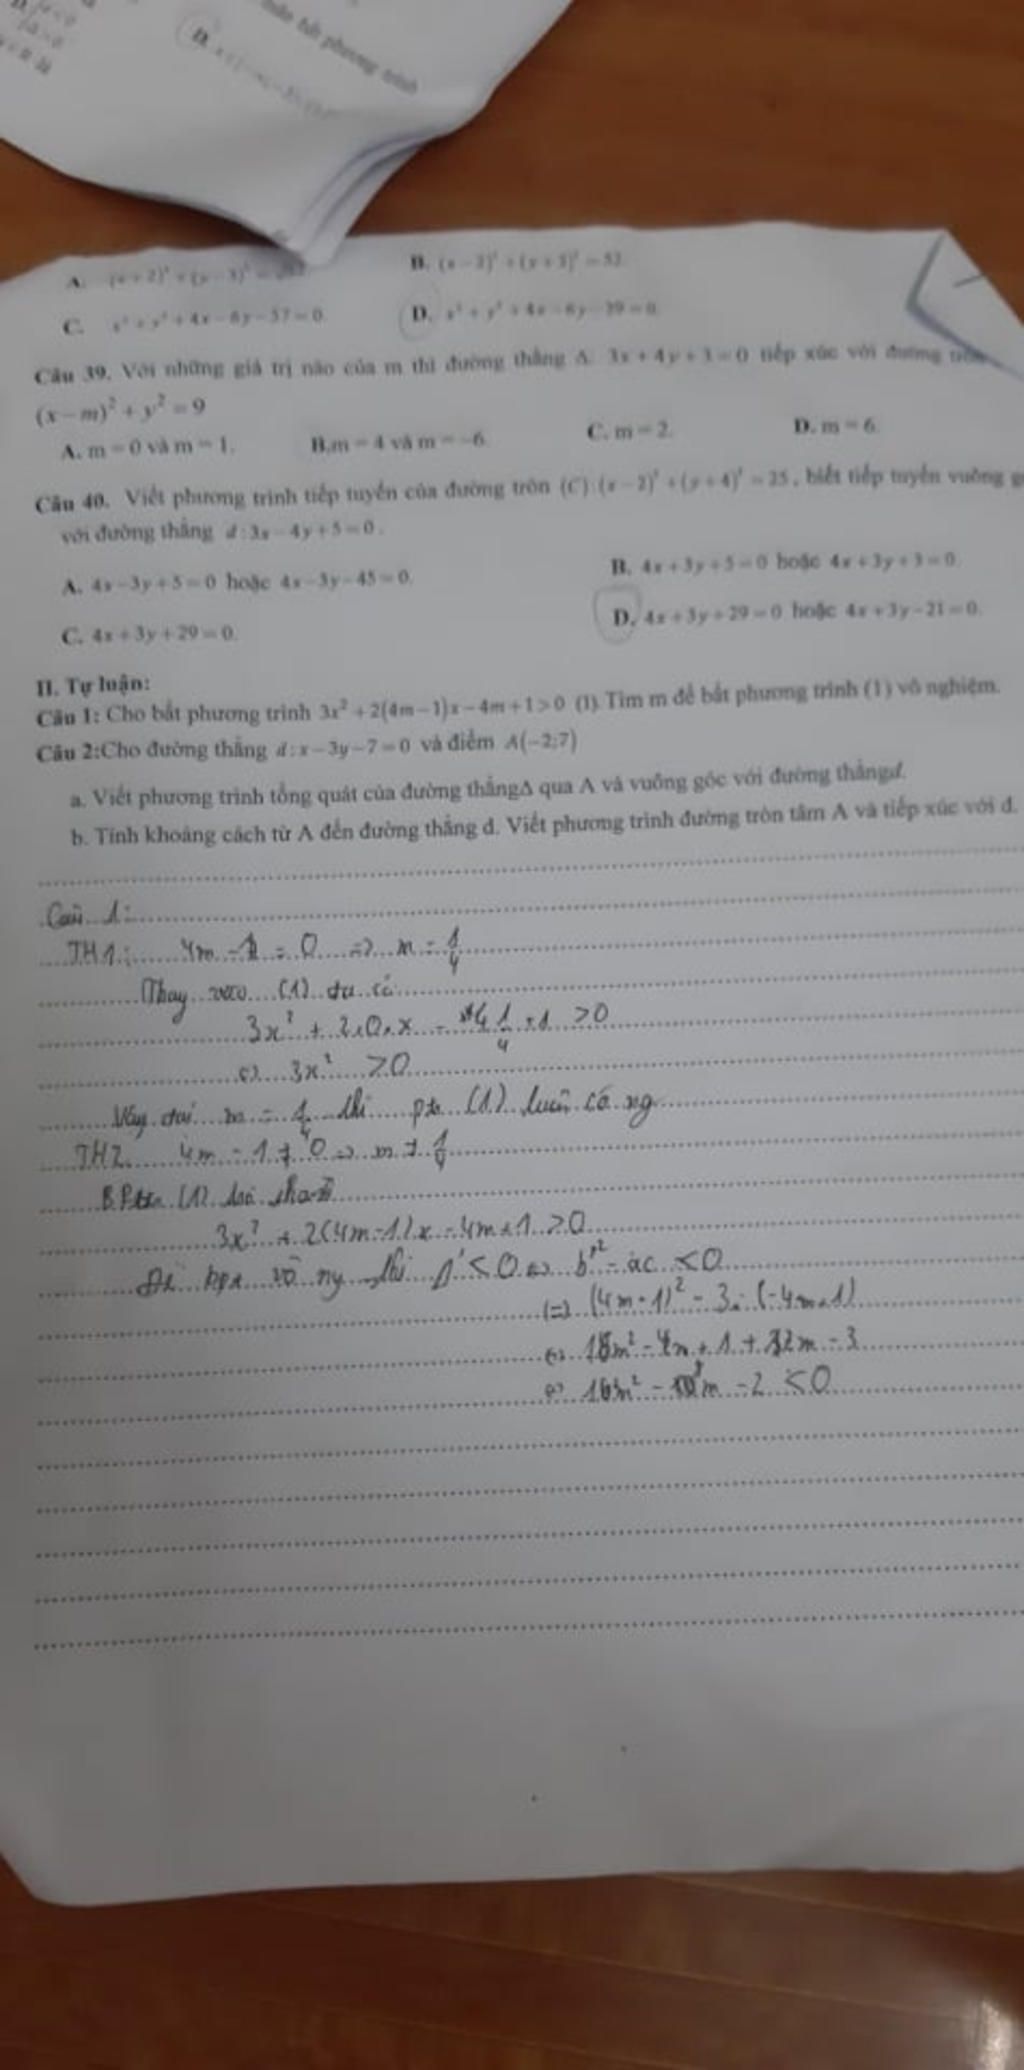 toàn bất phương trình
D.
A. (x+2)² + (y-3)² =
B. (x-2)² + (y+3)² = 52
C. x² + y² + 4x - 6y - 57 = 0
D. x² + y² + 4x - 6y - 39 = 0
Câu 39. Với những giá trị nào của m thì đường thẳng Δ: 3x + 4y + 3 = 0 tiếp xúc với đường tròn
(x-m)² + y² = 9
A. m = 0 và m = 1.
B. m = 4 và m = -6.
C. m = 2.
D. m = 6.
Câu 40. Viết phương trình tiếp tuyến của đường tròn (C): (x-2)² + (y+4)² = 25, biết tiếp tuyến vuông
với đường thẳng d: 3x - 4y + 5 = 0.
A. 4x - 3y + 5 = 0 hoặc 4x - 3y - 45 = 0.
B. 4x + 3y + 5 = 0 hoặc 4x + 3y + 3 = 0.
C. 4x + 3y + 29 = 0.
D. 4x + 3y + 29 = 0 hoặc 4x + 3y - 21 = 0.
II. Tự luận:
Câu 1: Cho bất phương trình 3x² + 2(4m-1)x - 4m + 1 > 0 (1). Tìm m để bất phương trình (1) vô nghiệm.
Câu 2: Cho đường thẳng d: x - 3y - 7 = 0 và điểm A(-2;7)
a. Viết phương trình tổng quát của đường thẳng Δ qua A và vuông góc với đường thẳng d.
b. Tính khoảng cách từ A đến đường thẳng d. Viết phương trình đường tròn tâm A và tiếp xúc với d.
Câu 1:
TH1: 4m - 1 = 0 => m = 1/4
Thay vào (1) ta có
3x² + 2.0.x - 4 1/4 + 1 > 0
<=> 3x² > 0
Vậy m = 1/4 thì pt (1) luôn có ng
TH2 4m - 1 ≠ 0 => m ≠ 1/4
(1)
3x² + 2(4m-1)x - 4m + 1 > 0
Để bpt vô ng thì Δ' < 0 <=> b'² - ac < 0
<=> (4m-1)² - 3.(-4m+1)
<=> 16m² - m + 1 + 12m - 3
<=> 16m² - m - 2 < 0